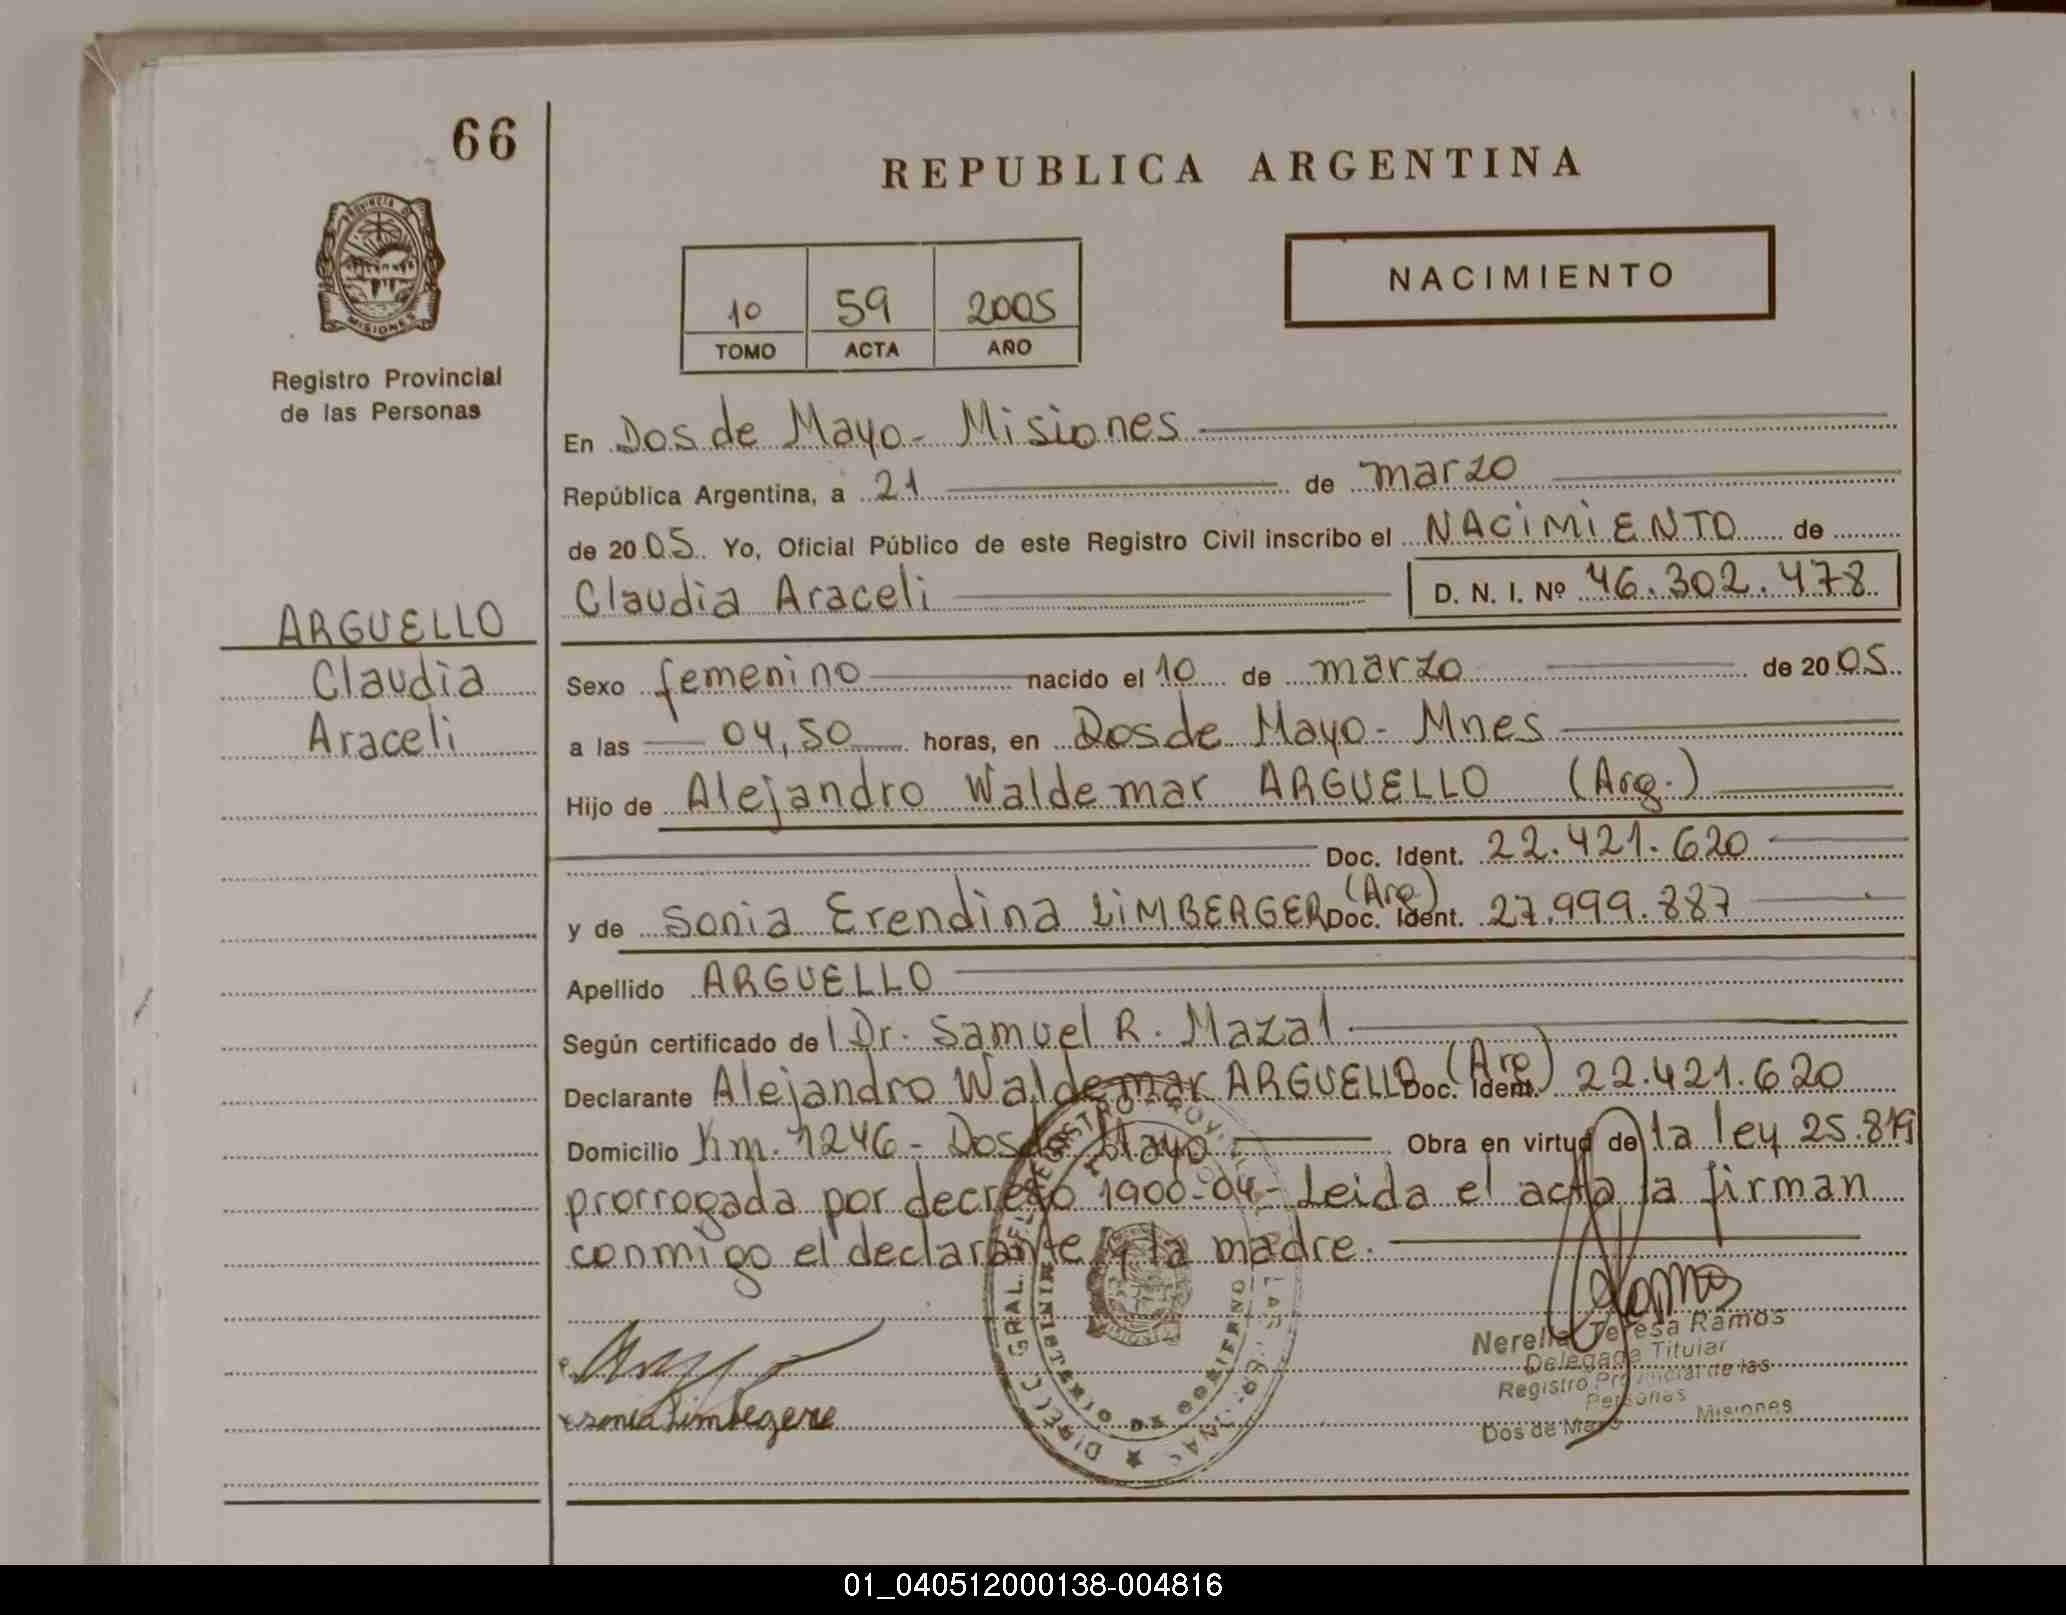 66
REPUBLICA ARGENTINA
PROVINCIA DE
MISIONES
Registro Provincial
de las Personas
10 59 2005
TOMO ACTA AÑO
NACIMIENTO
En Dos de Mayo - Misiones
República Argentina, a 21 de marzo
de 2005 Yo, Oficial Público de este Registro Civil inscribo el NACIMIENTO de
Claudia Araceli D. N. I. Nº 46.302.478
ARGUELLO
Claudia
Araceli
Sexo femenino nacido el 10 de marzo de 2005
a las 04,50 horas, en Dos de Mayo - Mnes
Hijo de Alejandro Waldemar ARGUELLO (Arg.)
Doc. Ident. 22.421.620
y de Sonia Erendina LIMBERGER (Arg) Doc. Ident. 27.999.887
Apellido ARGUELLO
Según certificado del Dr. Samuel R. Mazal
Declarante Alejandro Waldemar ARGUELLO (Arg) Doc. Ident. 22.421.620
Domicilio Km. 1246 - Dos de Mayo Obra en virtud de la ley 25.819
prorrogada por decreto 1900-04 - Leida el acta la firman
conmigo el declarante y la madre.
MINISTERIO DE GOBIERNO
Nerella Teresa Ramos
Delegada Titular
Registro Provincial de las
Personas
Dos de Mayo Misiones
01_040512000138-004816